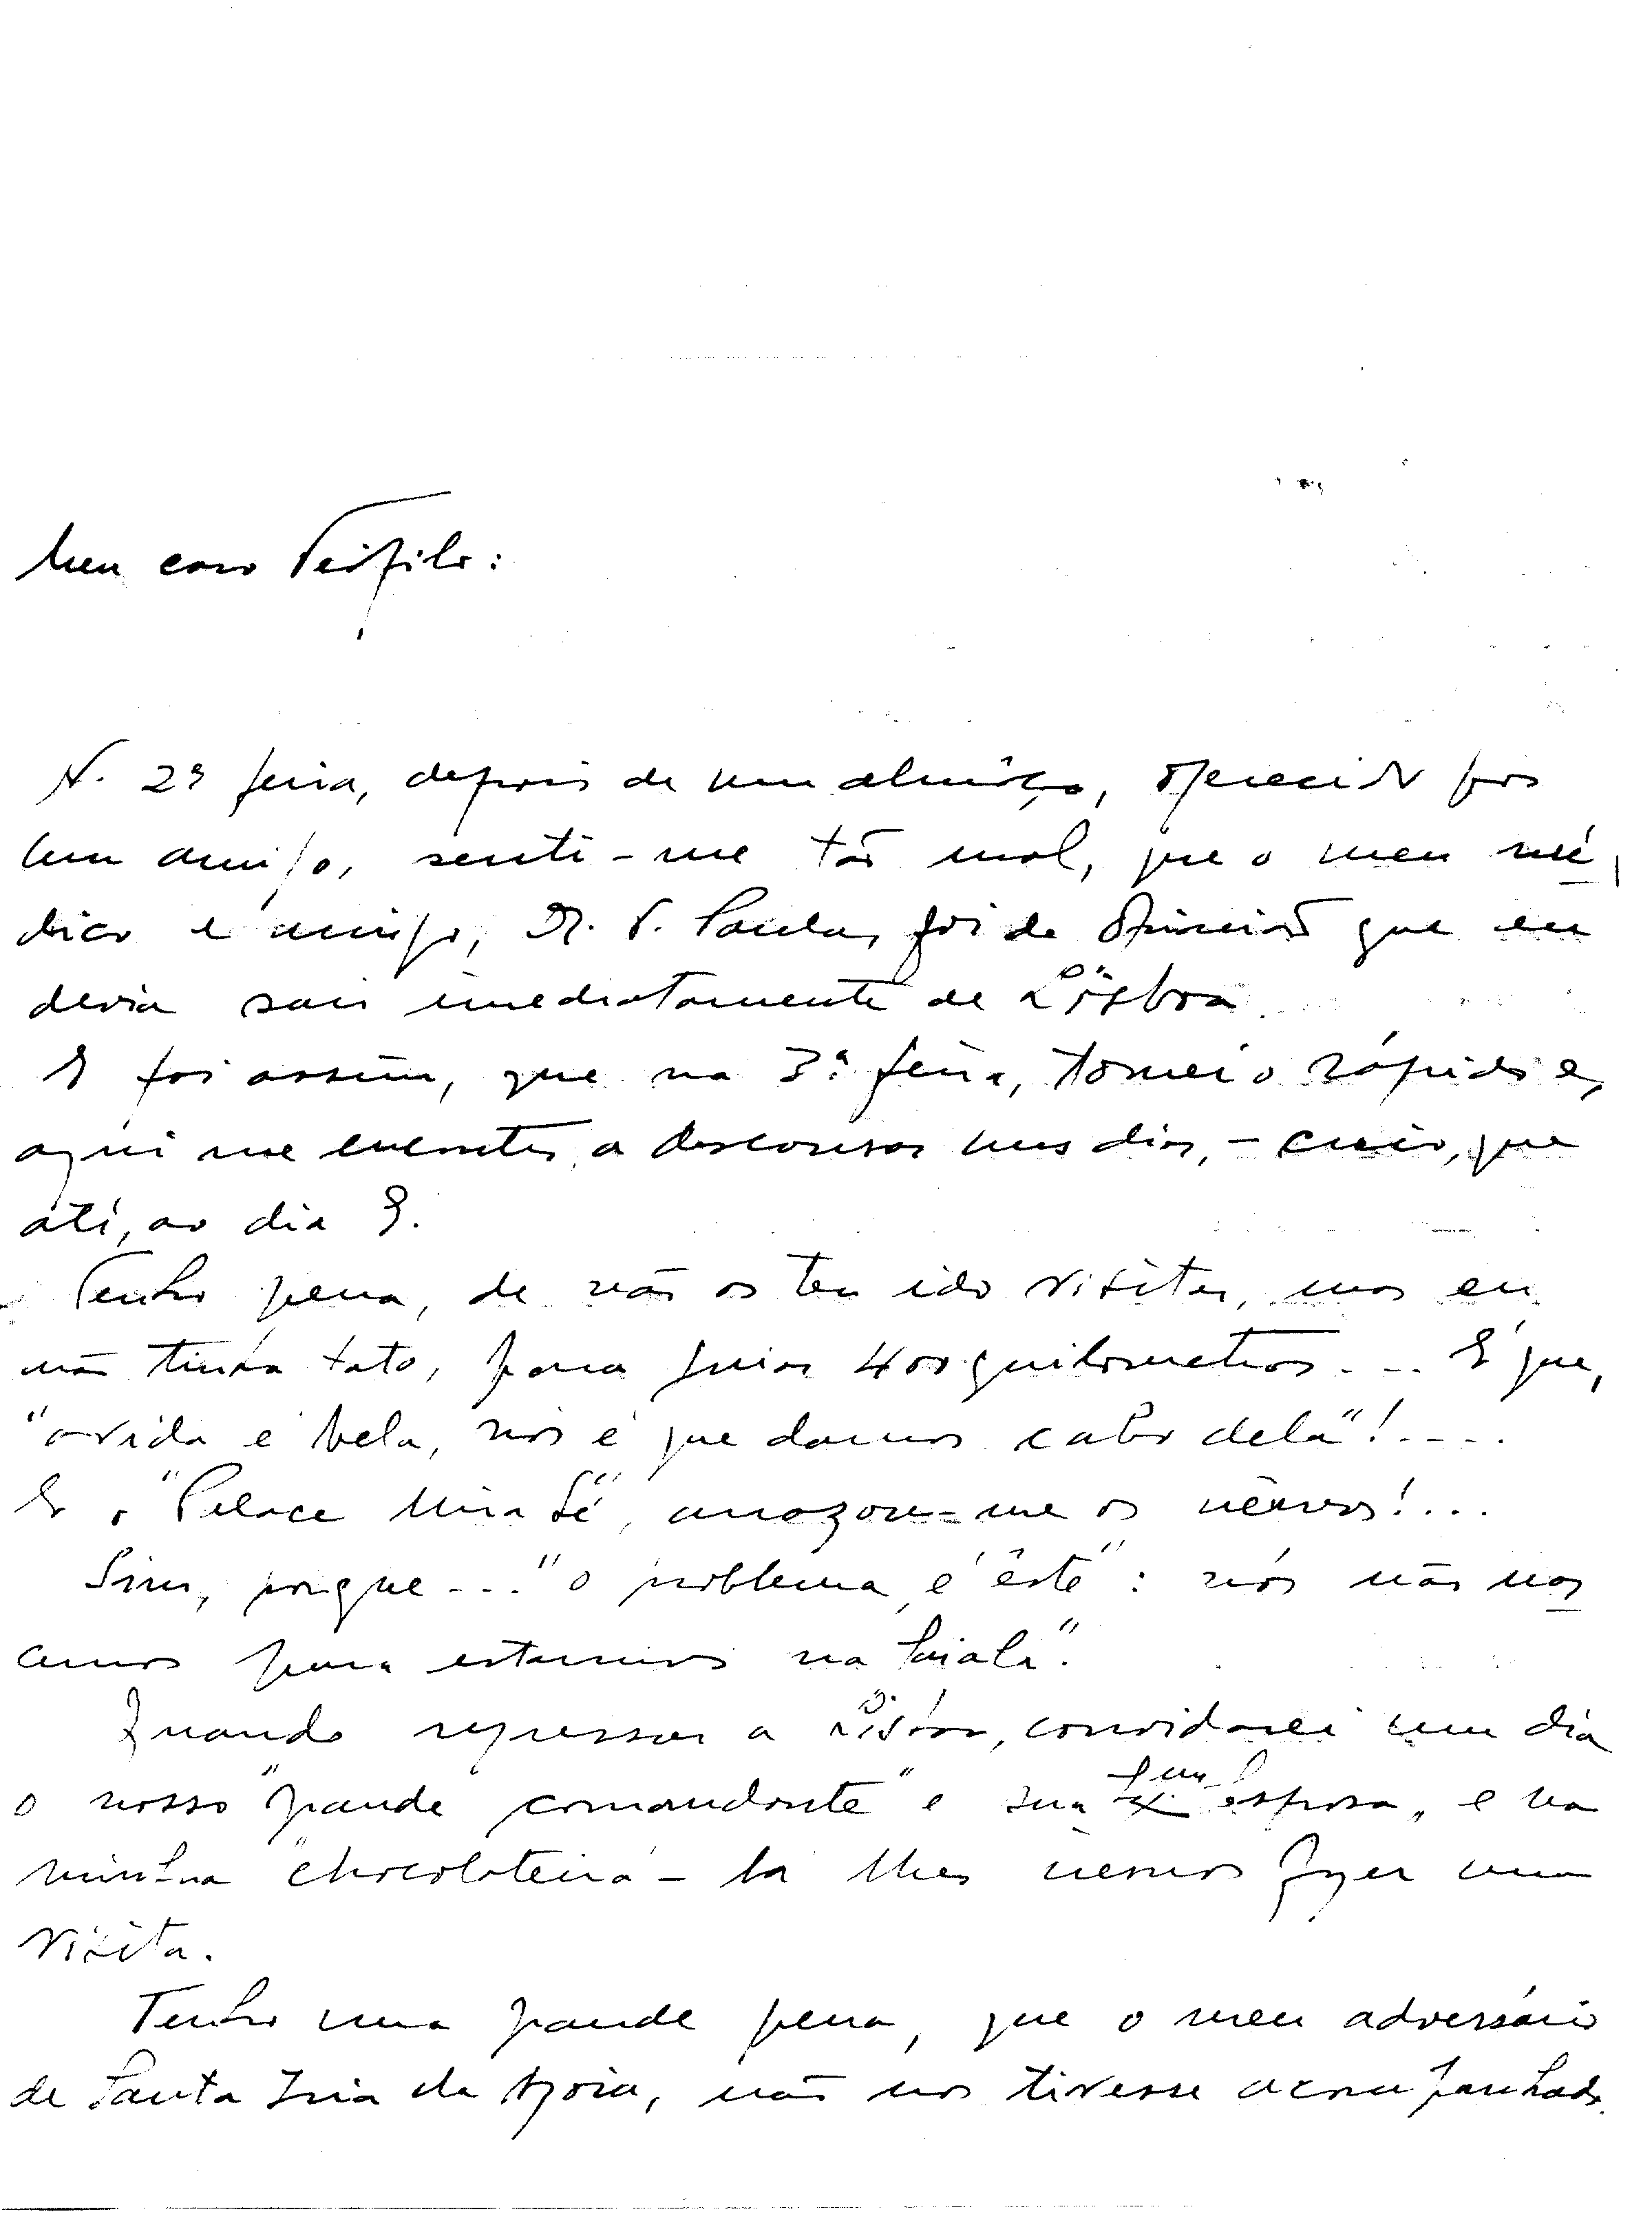 Meu caro Teófilo:
N. 2ª feira, depois de um almôço, oferecido por
um amigo, senti-me tão mal, que o meu mé-
dico e amigo, Dr. T. Paula, foi de opinião que eu
devia sair imediatamente de Lisboa.
E foi assim, que na 3ª feira, tomei o rápido e,
aqui me encontro, a descansar uns dias, - creio, que
até, ao dia 9.
Tenho pena, de não os ter ido visitar, mas eu
não tinha tato, para guiar 400 quilometros... É que,
"a vida é bela, nós é que damos cabo dela"!....
E o "Palace Mira Sé", arrazou-me os nêrvos!...
Sim, porque... "o problema, é êste": nós não nas
cemos para estarmos na
Quando regressar a Lisboa, convidarei um dia
o nosso "grande comandante" e sua esposa, e na
minha "chocolateira - lá lhes iremos fazer uma
visita.
Tenho uma grande pena, que o meu adversário
de Santa Iria da Azoia, não nos tivesse acompanhado.